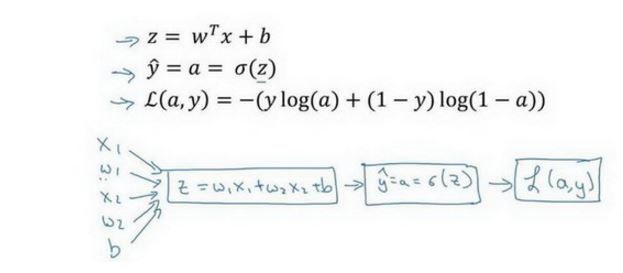 → z = wᵀx + b
→ ŷ = a = σ(z)
→ ℒ(a, y) = −(y log(a) + (1 − y) log(1 − a))
x₁
w₁
x₂
w₂
b
z = w₁x₁ + w₂x₂ + b → ŷ = a = σ(z) → ℒ(a,y)